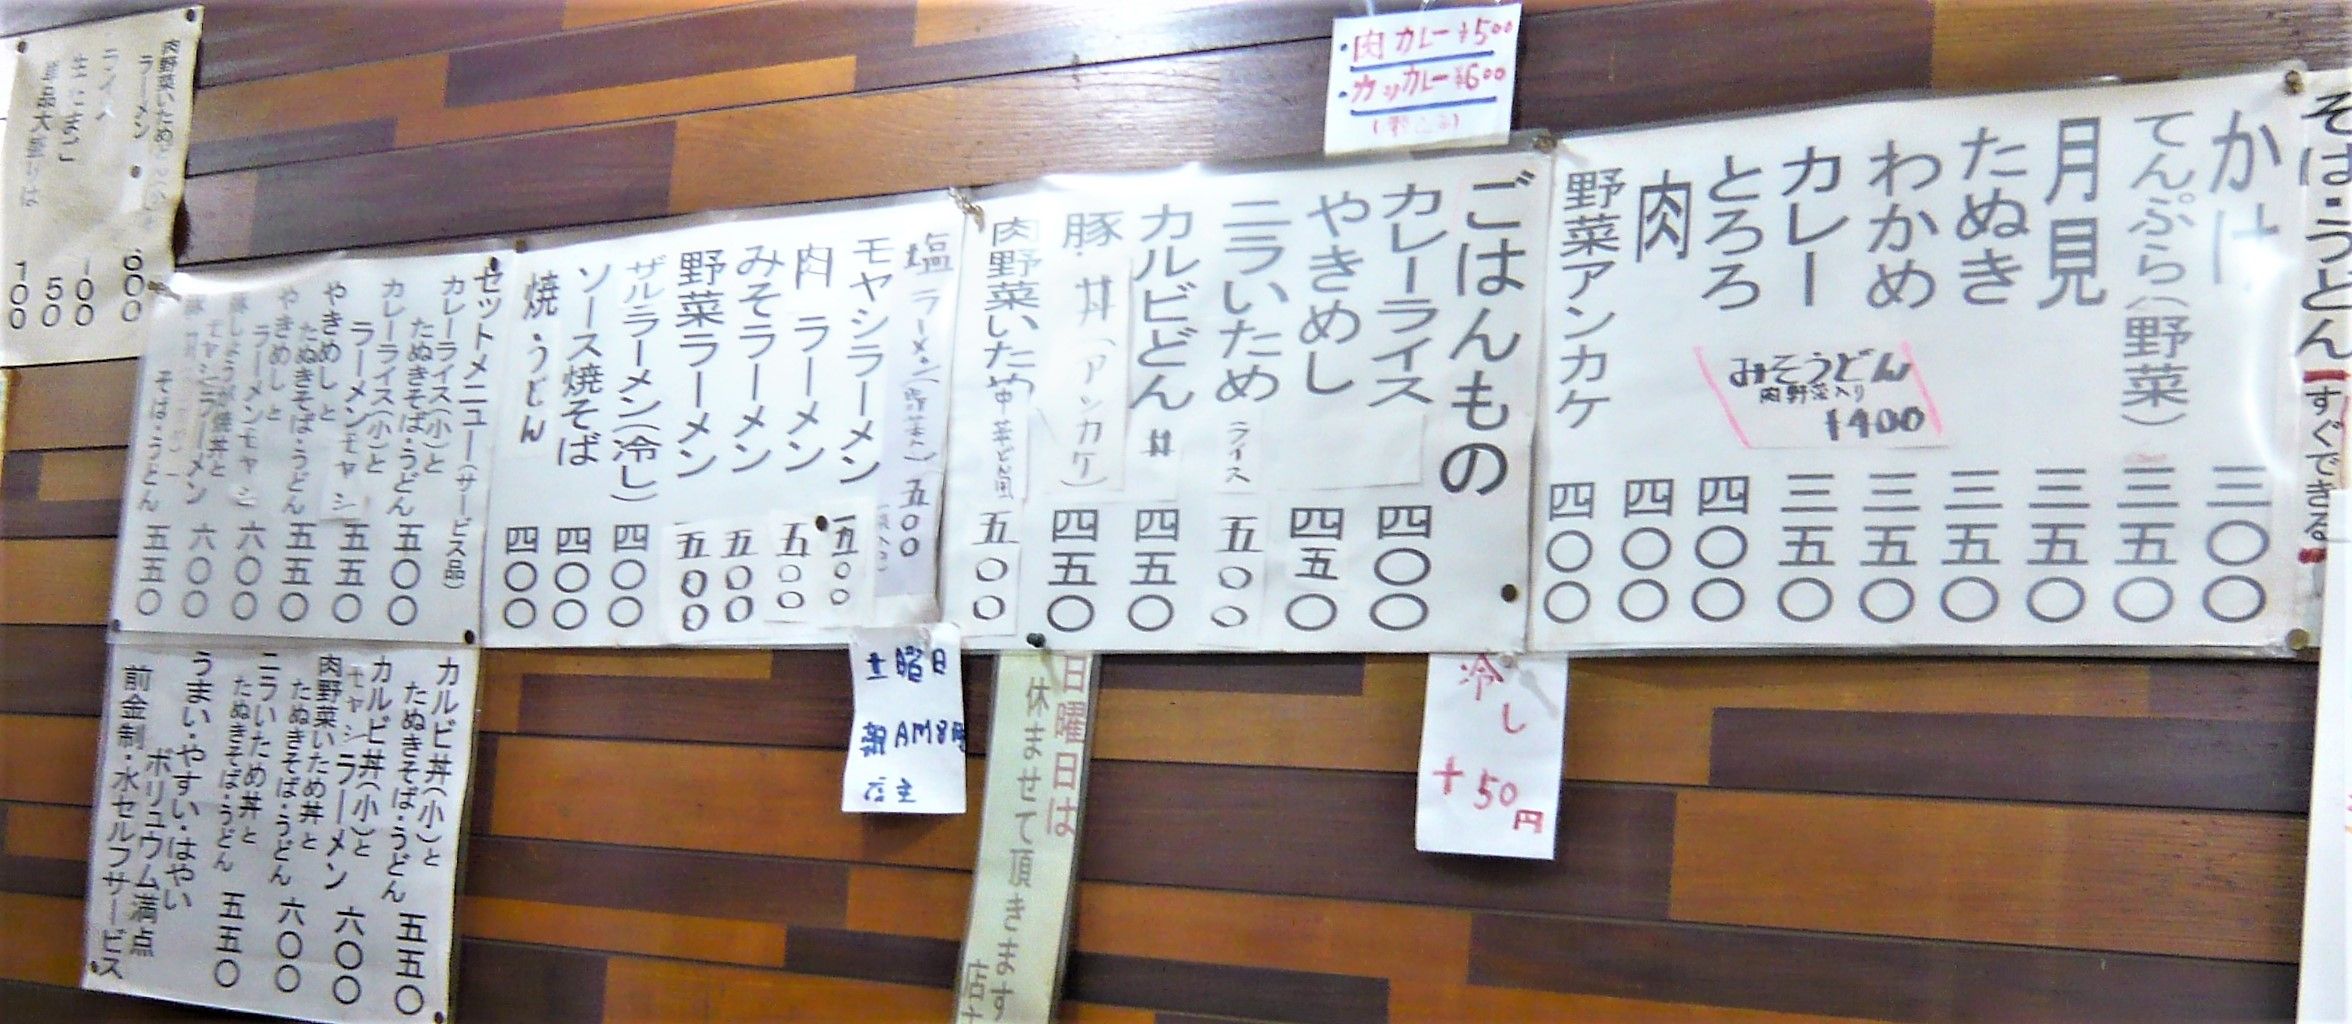 そば・うどん すぐできる
かけ 三〇〇
てんぷら(野菜) 三五〇
月見 三五〇
たぬき 三五〇
わかめ 三五〇
カレー 三五〇
とろろ 四〇〇
肉 四〇〇
野菜アンカケ 四〇〇
みそうどん
肉野菜入り
¥400
・肉カレー¥500
・カツカレー¥600
ごはんもの
カレーライス 四〇〇
やきめし 四五〇
ニラいため ライス 五〇〇
カルビどん 丼 四五〇
豚丼(アンカケ) 四五〇
肉野菜いため 中華どん風 五〇〇
塩ラーメン 五〇〇
モヤシラーメン 五〇〇
肉ラーメン 五〇〇
みそラーメン 五〇〇
野菜ラーメン 五〇〇
ザルラーメン(冷し) 四〇〇
ソース焼そば 四〇〇
焼・うどん 四〇〇
セットメニュー(サービス品)
カレーライス(小)と
たぬきそば・うどん 五〇〇
カレーライス(小)と
ラーメンモヤシ 五五〇
やきめしと
たぬきそば・うどん 五五〇
やきめしと
ラーメンモヤシ 六〇〇
豚しょうが焼丼と
モヤシラーメン 六〇〇
そば・うどん 五五〇
カルビ丼(小)と
たぬきそば・うどん 五五〇
カルビ丼(小)と
モヤシラーメン 六〇〇
肉野菜いため丼と
たぬきそば・うどん 六〇〇
ニラいため丼と
たぬきそば・うどん 五五〇
うまい・やすい・はやい
ボリュウム満点
前金制・水セルフサービス
肉野菜いため
ラーメン 600
100
50
100
冷し
+50円
日曜日は
休ませて頂きます
土曜日
朝AM8時
店主